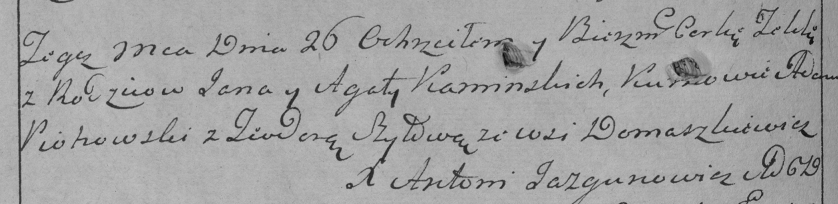 Tegoż mca Dnia 26 Ochrzciłem y Bierzm Corkę Teklę
z Rodzicow Jana y Agaty Kaminskich, Kumowie Adam
Piotrowski z Teodorą Rydwą ze wsi Domaszkiewicz
X Antoni Jazgunowicz AD619